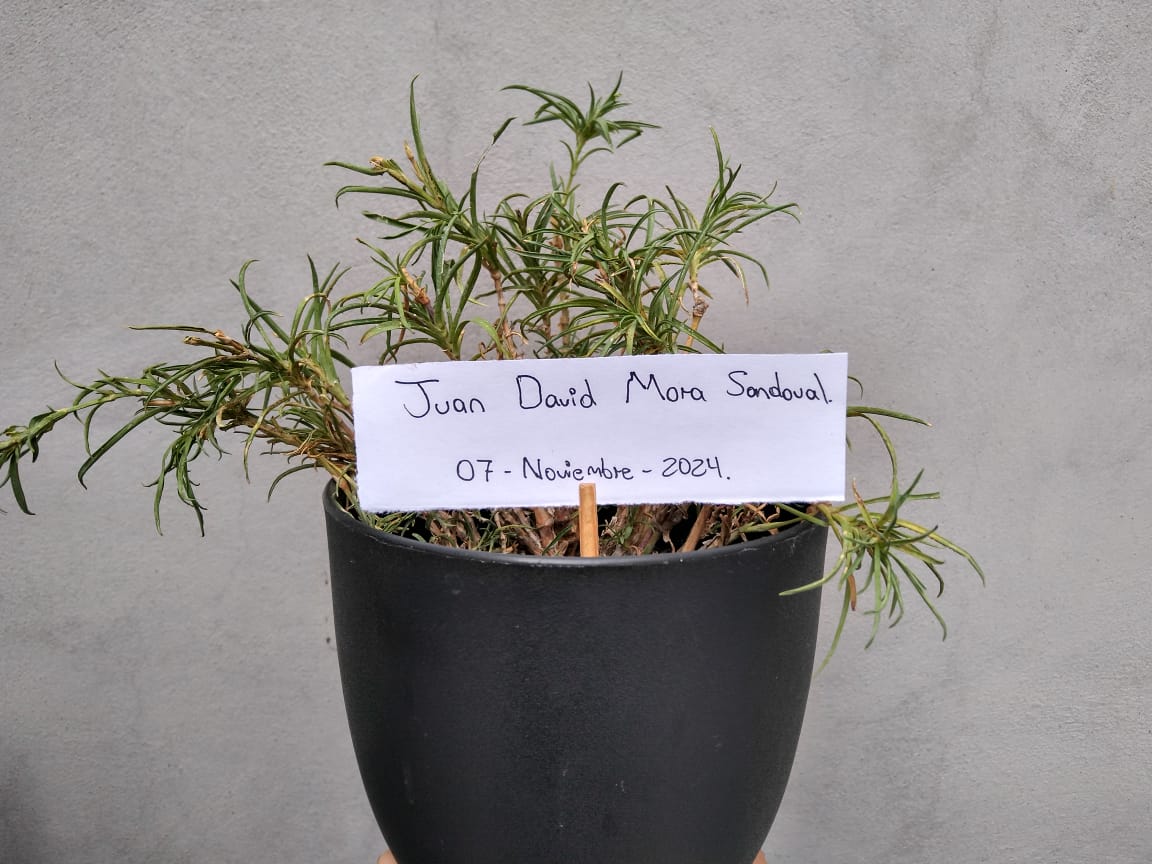 Juan David Mora Sandoval.
07 - Noviembre - 2024.